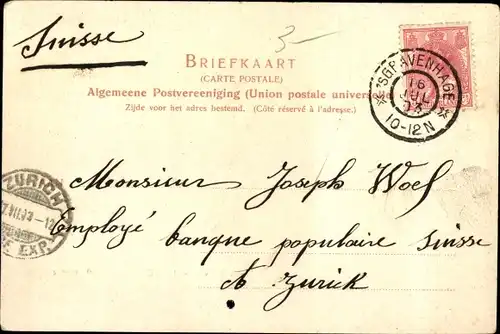 Suisse
3-
BRIEFKAART
(CARTE POSTALE)
Algemeene Postvereeniging (Union postale universelle)
Zijde voor het adres bestemd. (Côté réservé à l'adresse.)
'SGRAVENHAGE
16
JUL
10-12N
ZURICH
EXP.
Monsieur Joseph Woel
Employé banque populaire Suisse
à Zurick